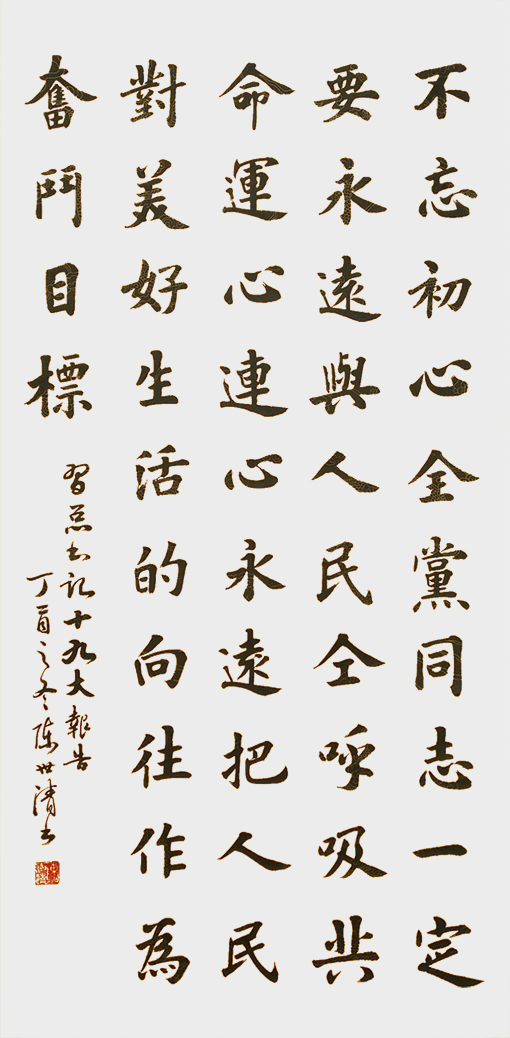 不忘初心全黨同志一定
要永遠與人民仝呼吸共
命運心連心永遠把人民
對美好生活的向往作為
奮鬥目標
習总书记十九大報告
丁酉之冬陳世清书